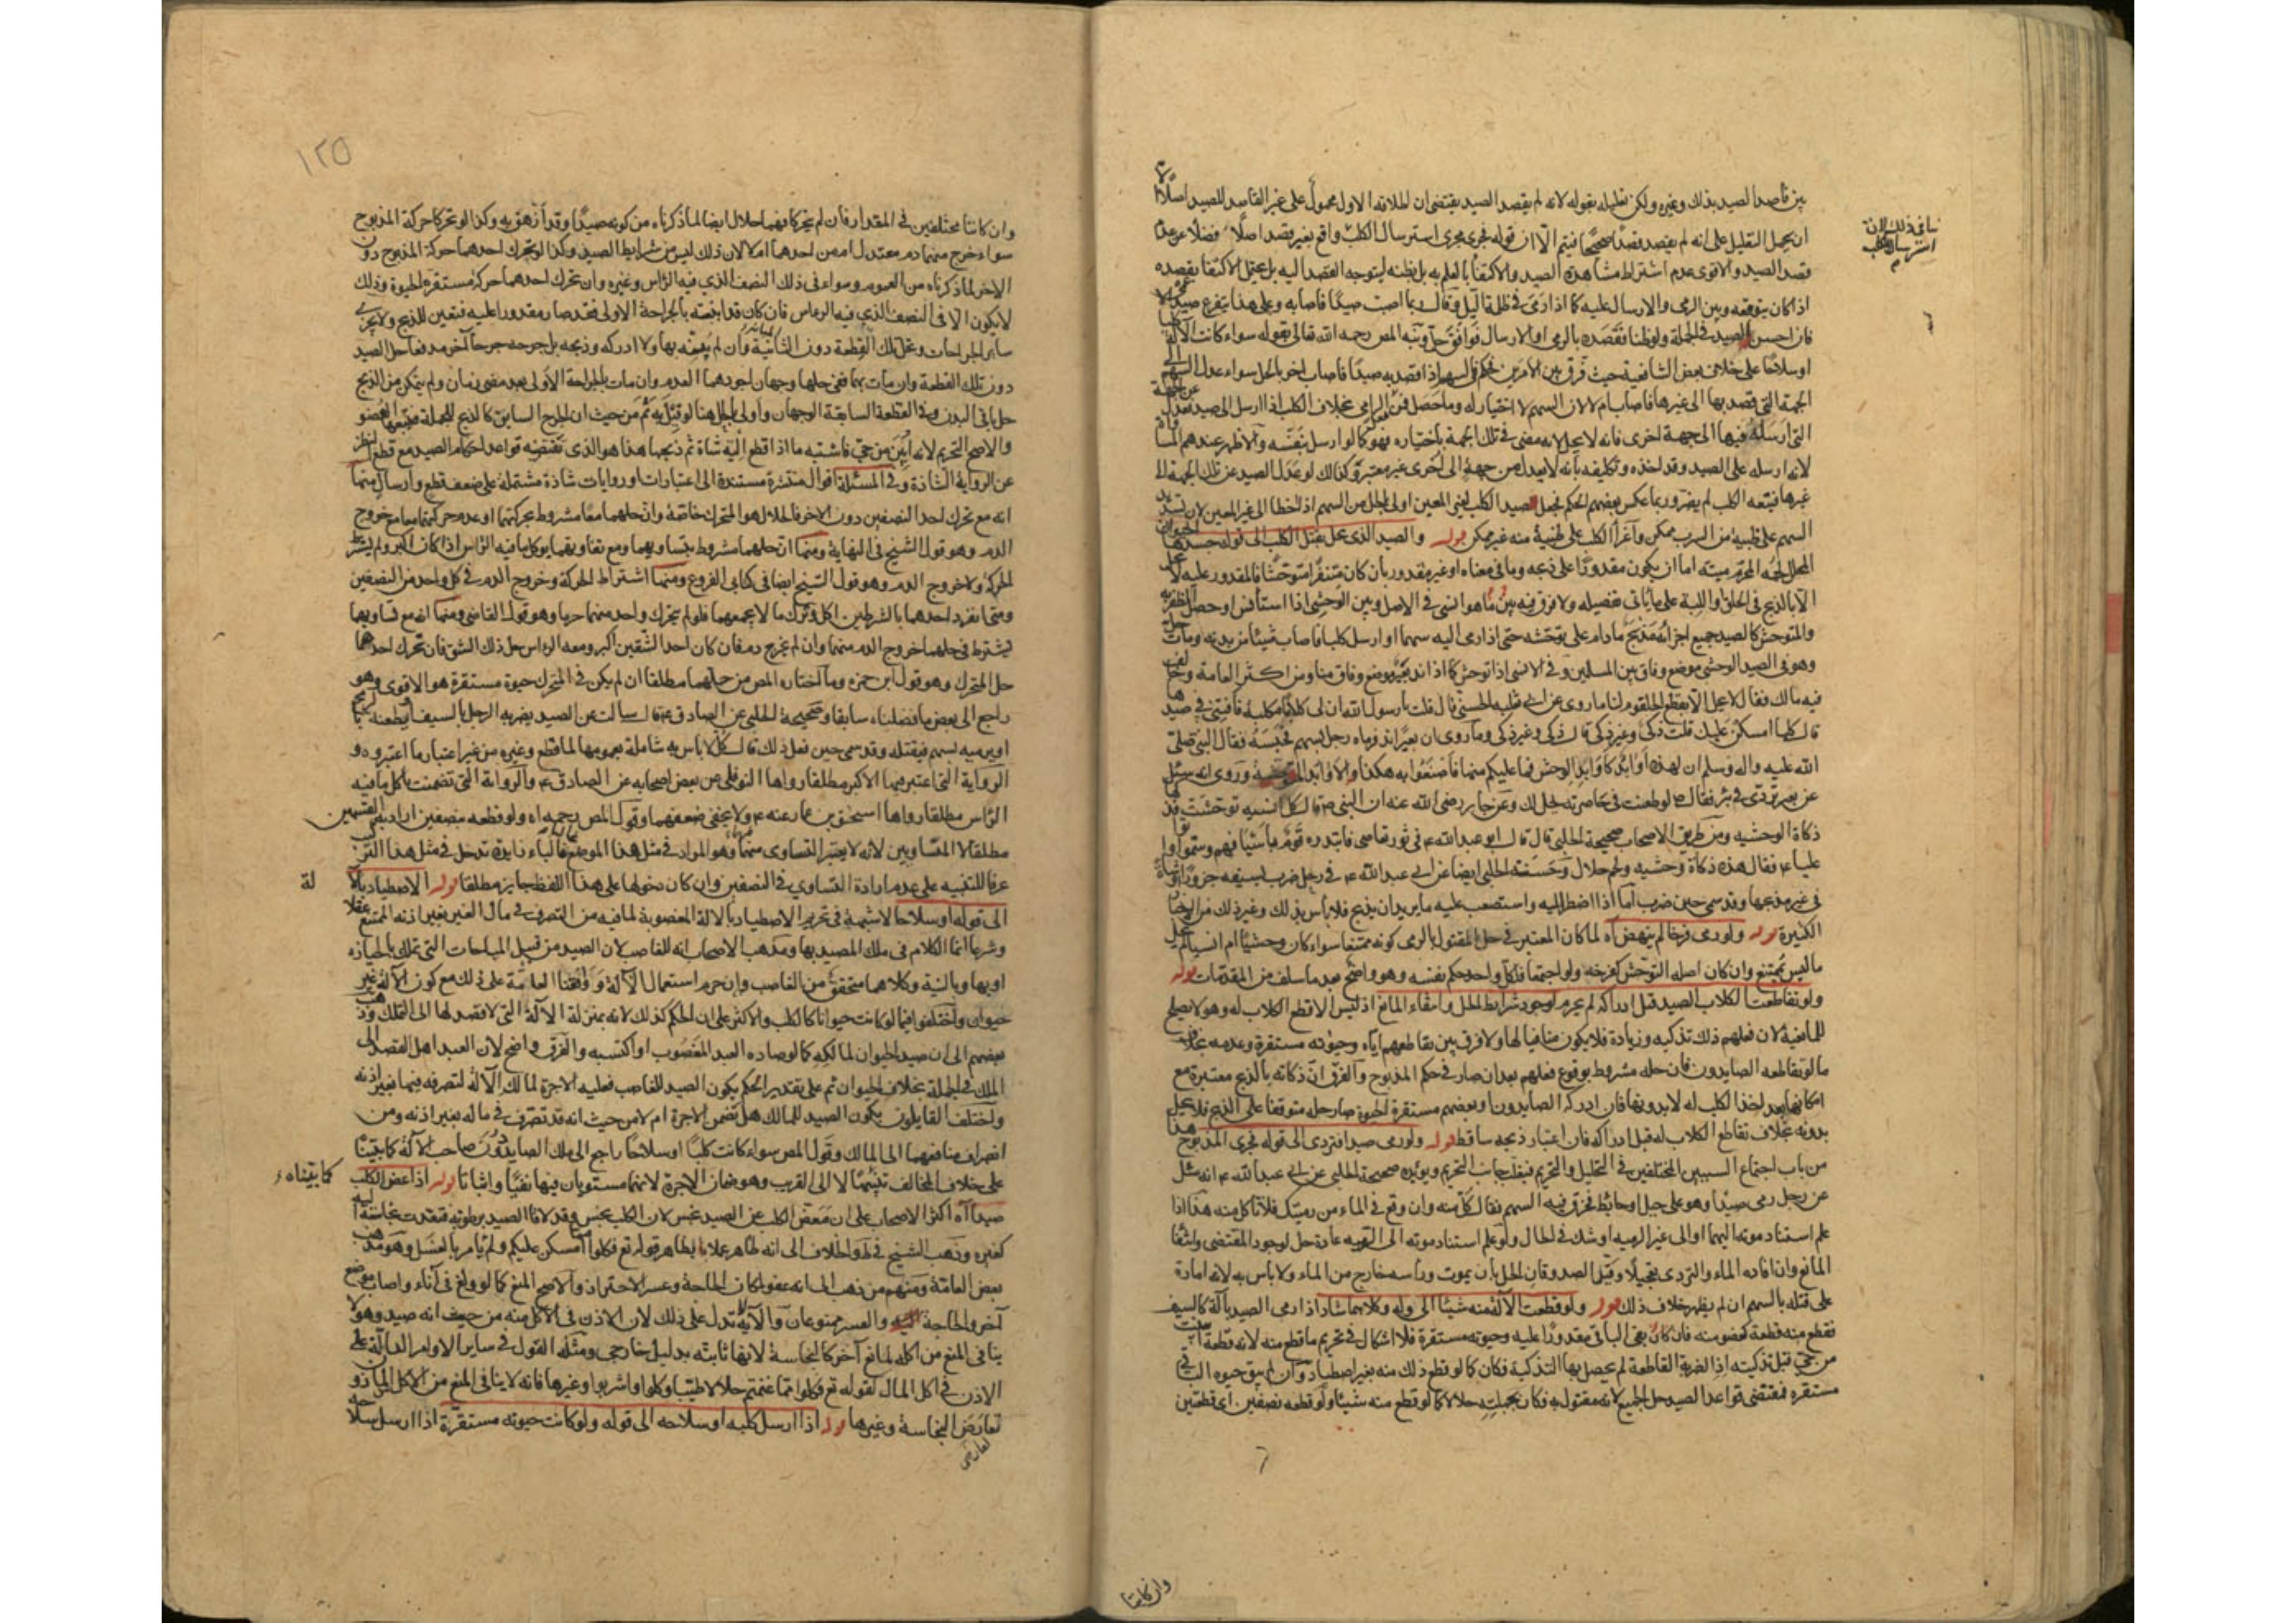 بين قاصد الصيد بذلك وغيره ولكن تعليله بقوله لانه لم يقصد الصيد يقتضي ان اطلاقه الاول محمول على غير القاصد للصيد اصلا الا
ان يحمل التعليل على انه لم يقصد قصدا صحيحا فيتم الا ان قوله فجرى مجرى استرسال الكلب واقع بغير قصد اصلا فضلا عن
قصد الصيد والاقوى عدم اشتراط مشاهدة الصيد والاكتفاء بالعلم به بل بظنه ليتوجه القصد اليه بل يحتمل الاكتفا بقصده
اذا كان يتوقعه وبين الرمي والارسال عليه كما اذا رمى في ظلمة الليل وقال ربما اصبت صيدا فاصابه وعلى هذا يتفرع
فان احس الصيد في الجملة ولو ظنا فقصده بالرمي او الارسال فوافق حل ونبه المص رحمه الله تعالى بقوله سواء كانت الآلة
او سلاحا على خلاف بعض الشافعية حيث فرق بين الامرين فحكم في السهم اذا قصد به صيدا فاصاب اخر بالحل سواء عدل السهم
الجهة التي قصد بها الى غيرها فاصاب ام لا لان السهم لا اختيار له وما حصل فمن الرامي بخلاف الكلب اذا ارسل الى صيد فعدل
التي ارسله فيها الى جهة اخرى فانه لا يحل لانه مضى في تلك الجهة باختياره فهو كما لو ارسل بنفسه والاظهر عندهم
لانه ارسله على الصيد وقد اخذه وتكليفه بانه لا يعدل من جهة الى اخرى غير معتبر وكذلك لو عدل الصيد عن تلك الجهة الى
غيرها فتبعه الكلب لم يضر وربما عكس بعضهم الحكم فجعل الصيد الكلب لغير المعين اولى بالحل من السهم اذا اخطا الى غير المعين لان
السهم على ظبية من السرب ممكن واغراء الكلب على ظبية منه غير ممكن قوله والصيد الذي يحل بقتل الكلب الى قوله جسدها
المحلل لحمه المحرم ميتته اما ان يكون مقدورا على ذبحه وما في معناه او غير مقدور بان كان متنفرا متوحشا فالمقدور عليه لا
الا بالذبح في الحلق او اللبة على ما ياتي تفصيله ولا فرق فيه بين ما هو انسي في الاصل وبين الوحشي اذا استانس او حصل الظفر به
والمتوحش كالصيد جميع اجزائه مذبح ما دام على توحشه حتى اذا رمى اليه سهما او ارسل كلبا فاصاب شيئا من بدنه ومات
وهو في الصيد الوحشي موضع وفاق بين المسلمين وفي الانسي اذا توحش كما اذا ند بعير موضع وفاق منا ومن اكثر العامة
فيه مالك فقال لا يحل الا بقطع الحلقوم لنا ما روى عن ابي ثعلبة الخشني قال قلت يا رسول الله ان لي كلابا مكلبة فافتني في صيد
قال كل ما امسكن عليك قلت ذكي وغير ذكي قال ذكي وغير ذكي وما روى ان بعيرا ند فرماه رجل بسهم فحبسه فقال النبي صلى
الله عليه واله وسلم ان لهذه اوابد كاوابد الوحش فما غلبكم منها فاصنعوا به هكذا والاوابد المتوحشة وروى انه سئل
عن بعير تردى في بئر فقال ص لو طعنت في خاصرته لحل لك وعن جابر رضي الله عنه ان النبي ص قال كل انسية توحشت
ذكاة الوحشية ومن طريق الاصحاب صحيحة الحلبي قال قال ابو عبد الله ع في ثور تعاصى فابتدره قوم باسيافهم وسموا
عليا ع فقال هذه ذكاة وحشية ولحم حلال وحسنة الحلبي ايضا عن ابي عبد الله ع في رجل ضرب بسيفه جزورا او شاة
في غير مذبحها وقد سمى حين ضرب اما اذا اضطر اليه واستصعب عليه ما يريد ان يذبح فلا باس بذلك وغير ذلك من
الكثيرة قوله ولو رمى فرخا لم ينهض اه لما كان المعتبر في حل المقتول بالرمي كونه ممتنعا سواء كان وحشيا ام انسيا لم يحل
ما ليس بممتنع وان كان اصله التوحش كفرخه ولو اجتمعا فلكل واحد حكم نفسه وهو واضح بعد ما سلف من المقدمات قوله
ولو تقاطعت الكلاب الصيد قبل ادراكه لم يحرم لوجود شرايط الحل وانتفاء المانع اذ ليس الا قطع الكلاب له وهو لا يصلح
للمانعية لان فعلهم ذلك تذكية وزيادة فلا يكون منافيا لها ولا فرق بين تقاطعهم اياه وحيوته مستقرة وعدمه بخلاف
ما لو تقاطعه الصايدون فان حله مشروط بوقوع فعلهم بعد ان صار في حكم المذبوح والفرق ان ذكاته بالذبح معتبرة مع
امكانها بعد اخذ الكلب له لا بدونها فان ادركه الصايدون او بعضهم مستقرة الحيوة صار حله متوقفا على الذبح فلا يحل
بدونه بخلاف تقاطع الكلاب له قبل ادراكه فان اعتبار ذبحه ساقط قوله ولو رمى صيدا فتردى الى قوله فجرى المذبوح
من باب اجتماع السببين المختلفين في التحليل والتحريم فيغلب جانب التحريم ويؤيده صحيحة الحلبي عن ابي عبد الله ع انه سئل
عن رجل رمى صيدا وهو على جبل او حائط فخرق فيه السهم فقال كل منه وان وقع في الماء من رميتك فلا تاكل منه هذا اذا
علم استناد موته اليهما او الى غير الرمية او شك في الحال ولو علم استناد موته الى الرمية عادة حل لوجود المقتضي وانتفا
المانع وان افاده الماء والتردي تعجيلا وقيد الصدوقان الحل بان يموت وراسه خارج من الماء ولا باس به لانه امارة
على قتله بالسهم ان لم يظهر خلاف ذلك قوله ولو قطعت الآلة منه شيئا الى قوله وكلاهما شاذ اذا رمى الصيد بآلة كالسيف
فقطع منه قطعة كعضو منه فان كان بقي الباقي مقدورا عليه وحيوته مستقرة فلا اشكال في تحريم ما قطع منه لانه قطعة
من حي قبل تذكيته اذ الضربة القاطعة لم يحصل بها التذكية فكان كما لو قطع ذلك منه بغير اصطياد وان لم يبق حيوة الباقي
مستقرة فمقتضى قواعد الصيد حل الجميع لانه مقتول به فكان بجملته حلالا كما لو قطع منه شيئا ولو قطعه نصفين اي قطعتين
وان كانتا
١٢٥
وان كانتا مختلفتين في المقدار فان لم يتحركا فهما حلال ايضا لما ذكرناه من كونه صيدا وقد ازهق به وكذا لو تحركا حركة المذبوح
سواء خرج منهما دم معتدل ام من احدهما ام لا لان ذلك ليس من شرايط الصيد وكذا لو تحرك احدهما حركة المذبوح دون
الاخر لما ذكرناه من العموم وسواء في ذلك النصف الذي فيه الراس وغيره وان تحرك احدهما حركة مستقرة الحيوة وذلك
لا يكون الا في النصف الذي فيه الراس فان كان قد اثبته بالجراحة الاولى فقد صار مقدورا عليه فتعين للذبح ولا يجزي
ساير الجراحات وتحل تلك القطعة دون الثانية وان لم يثبته بها ولا ادركه وذبحه بل جرحه جرحا آخر مدففا حل الصيد
دون تلك القطعة وان مات بهما ففي حلها وجهان اجودهما العدم وان مات بالجراحة الاولى بعد مضي زمان ولم يتمكن من الذبح
حل باقي البدن وفي القطعة السابقة الوجهان واولى بالحل هنا لو قيل به ثم من حيث ان الجرح السابق كالذبح للجملة فيتبعها العضو
والاصح التحريم لانه ابين من حي فاشبه ما اذا قطع الية شاة ثم ذبحها هذا هو الذي تقتضيه قواعد احكام الصيد مع قطع النظر
عن الرواية الشاذة وفي المسئلة اقوال منتشرة مستندة الى اعتبارات او روايات شاذة مشتملة على ضعف قطع وارسال منها
انه مع تحرك احد النصفين دون الاخر فالحلال هو المتحرك خاصة وان حلهما معا مشروط بحركتهما او عدم حركتهما معا مع خروج
الدم وهو قول الشيخ في النهاية ومنها ان حلهما مشروط بتساويهما ومع تفاوتهما يوكل ما فيه الراس اذا كان اكبر ولم يشترط
الحركة ولا خروج الدم وهو قول الشيخ ايضا في كتابي الفروع ومنها اشتراط الحركة وخروج الدم في كل واحد من النصفين
ومتى انفرد احدهما بالشرطين اكل وترك ما لا يجمعهما فلو لم يتحرك واحد منهما حرما وهو قول القاضي ومنها انه مع تساويهما
يشترط في حلهما خروج الدم منهما وان لم يخرج دم فان كان احد الشقين اكبر ومعه الراس حل ذلك الشق فان تحرك احدهما
حل المتحرك وهو قول ابن حمزة وما اختاره المص من حلهما مطلقا ان لم يكن في المتحرك حيوة مستقرة هو الاقوى وهو
راجع الى بعض ما فصلناه سابقا وصحيحة الحلبي عن الصادق ع قال سالت عن الصيد يضربه الرجل بالسيف او يطعنه
او يرميه بسهم فيقتله وقد سمى حين فعل ذلك قال كل لا باس به شاملة بعمومها لما قطع وغيره من غير اعتبار ما اعتبروه و
الرواية التي اعتبر فيها الاكبر مطلقا رواها النوفلي عن بعض اصحابه عن الصادق ع والرواية التي تضمنت اكل ما فيه
الراس مطلقا رواها اسحق بن عمار عنه ع ولا يخفى ضعفهما وقول المص رحمه اه ولو قطعه بنصفين اراد القسمين
مطلقا لا المتساويين لانه لا يعتبر التساوي منهما وهو المراد في مثل هذا الموضع فالباء زايدة تدخل في مثل هذا
عرفا للتنبيه على عدم ارادة التساوي في النصفين وان كان دخولها على هذا اللفظ جايز مطلقا قوله الاصطياد بالآ
لة
الى قوله او سلاحا لا شبهة في تحريم الاصطياد بالالة المغصوبة لما فيه من التصرف في مال الغير بغير اذنه الممتنع عقلا
وشرعا انما الكلام في ملك المصيد بها ومذهب الاصحاب انه للغاصب لان الصيد من قبيل المباحات التي تملك بالحيازة
او بها وبالنية وكلاهما متحقق من الغاصب وان حرم استعمال الآلة ووافقنا العامة على ذلك مع كون الآلة غير
حيوان واختلفوا فيما لو كانت حيوانا كالكلب والاكثر على ان الحكم كذلك لانه بمنزلة الآلة التي لا قصد لها الى التملك وذهب
بعضهم الى ان صيد الحيوان لمالكه كما لو صاده العبد المغصوب او اكتسبه والفرق واضح لان العبد اهل القصد الى
الملك في الجملة بخلاف الحيوان ثم على تقدير الحكم بكون الصيد للغاصب فعليه الاجرة لمالك الآلة لتصرفه فيها بغير اذنه
واختلف القايلون بكون الصيد للمالك هل تضمن الاجرة ام لا من حيث انه قد تصرف في ماله بغير اذنه ومن
انصراف منافعهما الى المالك وقول المص سواء كانت كلبا او سلاحا راجع الى ملك الصايد دون صاحب الآلة كما بيناه
على خلاف المخالف تنبيها لا الى القرب وهو ضمان الاجرة لانهما مستويان فيها نفيا واثباتا قوله اذا عض الكلب
صيدا اه اكثر الاصحاب على ان معض الكلب من الصيد نجس لان الكلب نجس وقد لاقا الصيد برطوبة فتعدت نجاسته اليه
كغيره وذهب الشيخ في ط والخلاف الى انه طاهر عملا بظاهر قوله تع فكلوا مما امسكن عليكم ولم يامر بالغسل وهو مذهب
بعض العامة ومنهم من ذهب الى انه عفو لمكان الحاجة وعسر الاحتراز والاصح المنع كما لو ولغ في اناء واصاب موضع
آخر والحاجة والعسر ممنوعان والآية لا تدل على ذلك لان الاذن في الاكل منه من حيث انه صيد وهو لا
ينافي المنع من اكله لمانع آخر كالنجاسة لانها ثابتة بدليل خارجي ومثله القول في ساير الاوامر الدالة على
الاذن في اكل المال كقوله تع فكلوا مما غنمتم حلالا طيبا وكلوا واشربوا وغيرها فانه لا ينافي المنع من الاكل الماذون
لعارض النجاسة وغيرها قوله اذا ارسل كلبه او سلاحه الى قوله ولو كانت حيوته مستقرة اذا ارسل سلاحه